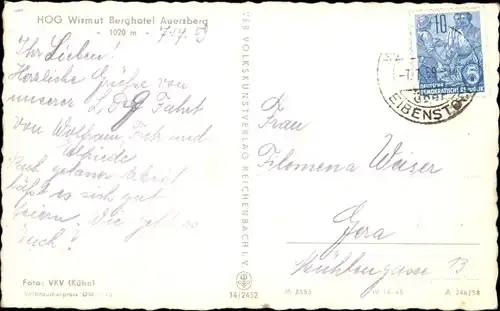 HOG Wismut Berghotel Auersberg
- 1020 m -
Ihr Lieben!
Herzliche Grüße von
unserer LPG Fahrt
von Wolfram, Erich und
Elfriede
Nach getaner Arbeit
läßt es sich gut
feiern. Wie geht es
Euch?
Foto: VKV (Kühn)
Verbraucherpreis DM
VEB VOLKSKUNSTVERLAG REICHENBACH I. V.
14/2452
10
DEUTSCHE
DEMOKRATISCHE REPUBLIK
EIBENSTOCK
Frau
Filomena Weiser
Gera
Mühlengasse 13
IV-14-45
A 246/58